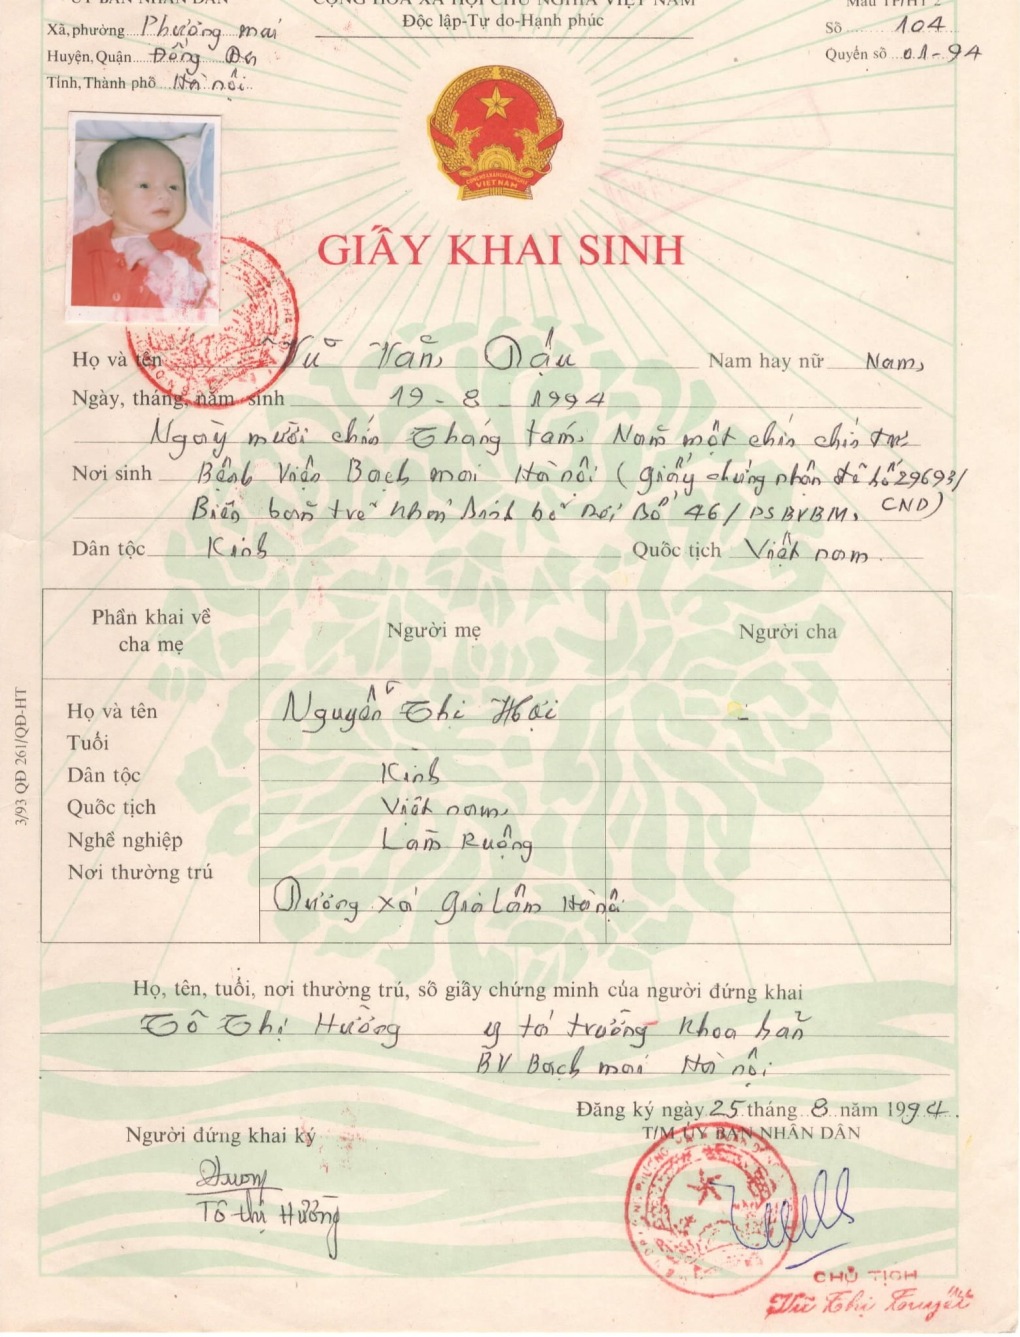 ỦY BAN NHÂN DÂN
CỘNG HÒA XÃ HỘI CHỦ NGHĨA VIỆT NAM
Mẫu TP/HT 2
Xã, phường Phường mai
Độc lập-Tự do-Hạnh phúc
Số 104
Huyện, Quận Đống Đa
Quyển số 01-94
Tỉnh, Thành phố Hà nội
VIỆT NAM
GIẤY KHAI SINH
Họ và tên Vũ Văn Dậu Nam hay nữ Nam
Ngày, tháng, năm sinh 19 - 8 - 1994
Ngày mười chín tháng tám, Năm một chín chín tư
Nơi sinh Bệnh Viện Bạch mai Hà nội (giấy chứng nhận đẻ số 29693/
CND)
Biên bản trẻ bỏ rơi số 46/PSBVBM,
Dân tộc Kinh Quốc tịch Việt nam
Phần khai về
cha mẹ
Người mẹ
Người cha
Họ và tên Nguyễn Thị Hợi -
Tuổi
Dân tộc Kinh
Quốc tịch Việt nam
Nghề nghiệp Làm Ruộng
Nơi thường trú
Dương xá Gia Lâm Hà nội
3/93 QĐ 261/QĐ-HT
Họ, tên, tuổi, nơi thường trú, số giấy chứng minh của người đứng khai
Tô Thị Hường y tá trưởng Khoa sản
BV Bạch mai Hà nội
Đăng ký ngày 25 tháng 8 năm 1994
Người đứng khai ký
T/M ỦY BAN NHÂN DÂN
Tô thị Hường
CHỦ TỊCH
Vũ Thị Tuyết